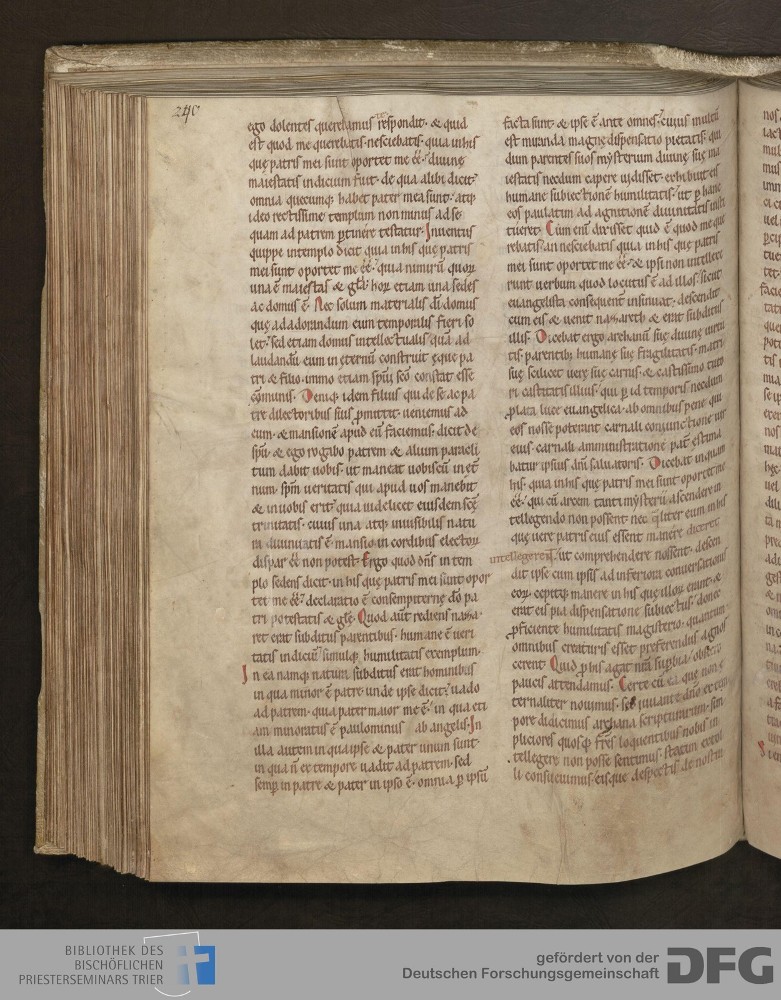 240
ego dolentes querebamus respondit· & quid
est quod me querebatis· nesciebatis· quia in his
quę patris mei sunt oportet me ee̅· diuinę
maiestatis indicium fuit· de qua alibi dicit·
omnia quecumq; habet pater mea sunt· atq;
ideo rectissime templum non minus ad se
quam ad patrem ꝑtinere testatur· Inuentus
quippe intemplo dicit quia in his quę patris
mei sunt oportet me ee̅· quia nimiru̅ quoꝝ
una e̅ maiestas & gl̅a hoꝝ etiam una sedes
ac domus e̅· Nec solum materialis di̅ domus
quę adadorandum eum temporalis fieri so
let· sed etiam domus intellectualis quę ad
laudandu̅ eum in ęternu̅ construit ęque pa
tri & filio· immo etiam spu̅i sco̅ constat esse
co̅munis· Deniq; idem filius qui de se ac pa
tre dilectoribus suis ꝓmittit· ueniemus ad
eum· & mansione̅ apud eu̅ faciemus· dicit de
spu̅· & ego rogabo patrem & alium paracli
tum dabit uobis· ut maneat uobiscu̅ in et̅
num· spm̅ ueritatis qui apud uos manebit
& in uobis erit· quia uidelicet eiusdem sce̅
trinitatis· cuius una atq; inuisibilis natu
ra diuinitatis e̅· mansio in cordibus electoꝝ
dispar ee̅ non potest· Ergo quod dn̅s in tem
plo sedens dicit· in his quę patris mei sunt opor
tet me ee̅· declaratio e̅ consempiternę do̅ pa
tri potestatis & glę̅· Quod aut̅ rediens naza
ret erat subditus parentibus· humanę e̅ ueri
tatis indiciu̅ simulq; humilitatis exemplum·
In ea namq; natura subditus erat hominibus
in qua minor e̅ patre· unde ipse dicit· uado
ad patrem· quia pater maior me e̅· in qua eti
am minoratus e̅ paulominus ab angelis· In
illa autem in qua ipse & pater unum sunt·
in qua n̅ ex tempore uadit ad patrem· sed
semp̅ in patre & pater in ipso e̅· omnia ꝑ ipsu̅
facta sunt· & ipse e̅ ante omnes· cuius multu̅
est miranda magnę dispensatio pietatis· qui
dum parentes suos mysterium diuinę suę ma
iestatis necdum capere uidisset· exhibuit eis
humanę subiectionę humilitate̅· ut ꝑ hanc
eos paulatim ad agnitione̅ diuinitatis insti
tueret· Cum eni̅ dixisset quid e̅ quod me que
rebatis· an nesciebatis quia in his quę patris
mei sunt oportet me ee̅· & ipsi non intellexe
runt uerbum quod locutus e̅ ad illos· sicut
euangelista consequent̅ insinuat· descendit
cum eis & uenit nazareth· & erat subditus
illis· Dicebat ergo archanu̅ suę diuinę uirtu
tis· parentib; humanę suę fragilitatis· matri
suę scilicet uerę suę carnis· & castissimo tuto
ri castitatis illius· qui ꝑ id temporis necdum
ꝓlata luce euangelica· ab omnibus pene qui
eos nosse poterant· carnali coniunctione uir
eius· carnali amministratione pat̅ estima
batur ipsius dn̅i saluatoris· Dicebat inquam
his· quia in his quę patris mei sunt oportet me
ee̅· qui cu̅ arcem tanti mysterii ascendere in
tellegendo non possent· nec qualiter eum in his
quę uere patris eius essent manere diceret
intellegere ut comprehendere nossent· descen
dit ipse cum ipsis ad inferiora conuersationis
eoꝝ· cepitq; manere in his quę illoꝝ erant· &
erat eis pia dispensatione subiectus· donec
ꝓficiente humilitatis magisterio· quantum
omnibus creaturis esset preferendus agnos
cerent· Quid ꝑ his agat nr̅a supbia obsecro
paucis attendamus· Certe cu̅ ea quę non e
ternaliter nouimus· sed iuuante dn̅o ex tem
pore didicimus archana scripturarum· sim
pliciores quosq; fr̅es loquentibus nobis in
tellegere non posse sentimus· statim extol
li consueuimus· eisque despectis de nostra
BIBLIOTHEK DES
BISCHÖFLICHEN
PRIESTERSEMINARS TRIER
gefördert von der
Deutschen Forschungsgemeinschaft
DFG